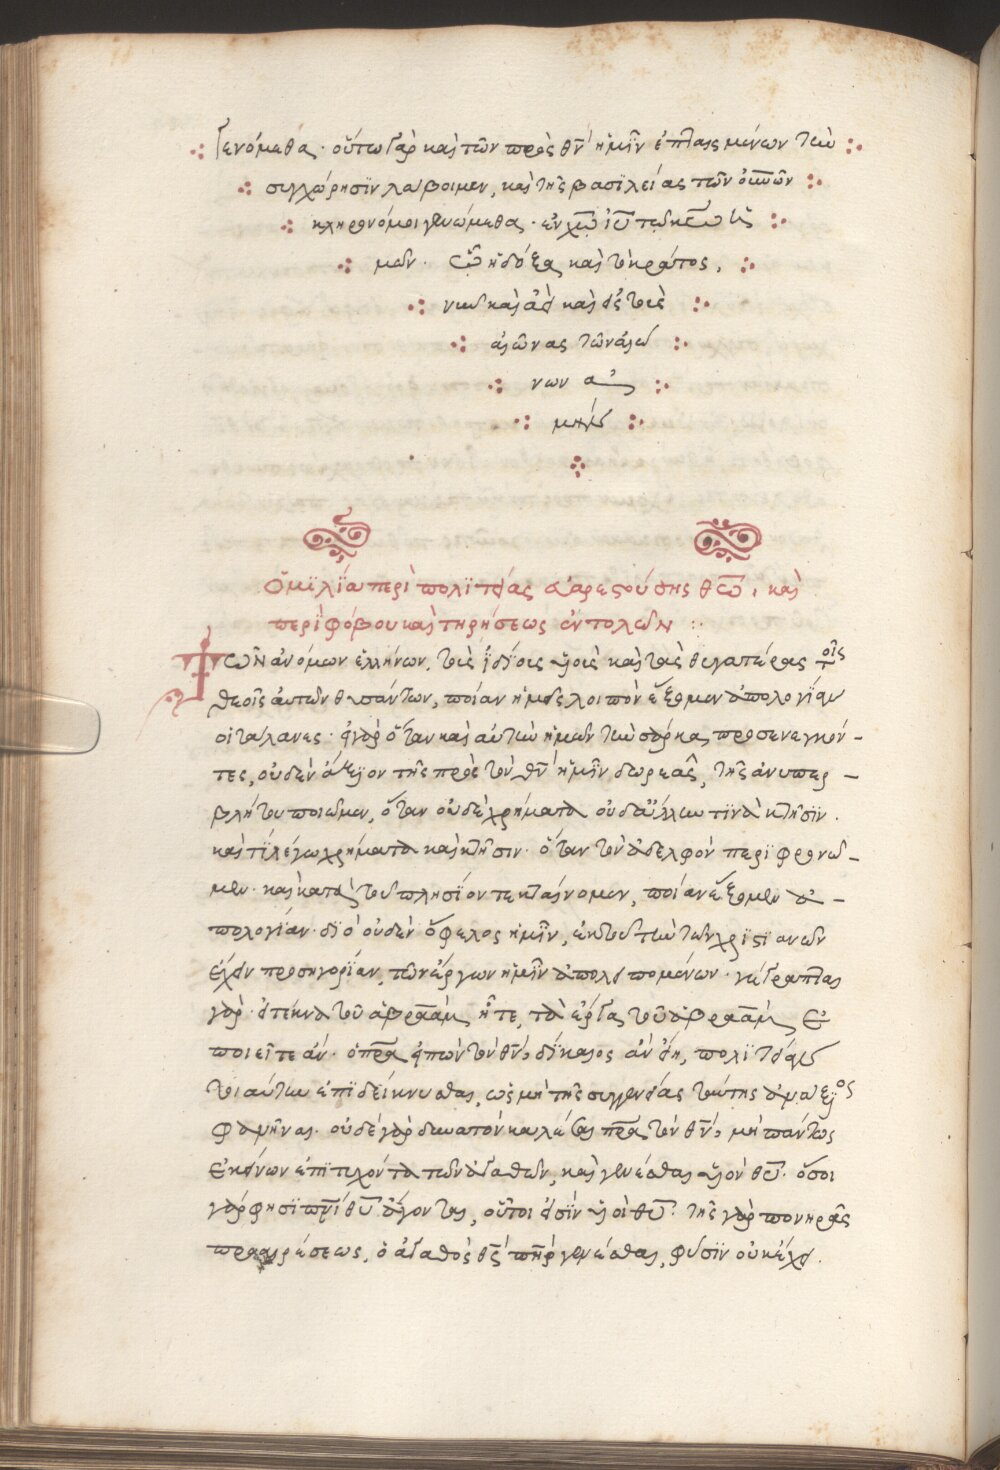 γενόμεθα· οὕτω γὰρ καὶ τῶν πρὸς θν ἡμῖν ἐπταισμένων τὴν
συγχώρησϊν λάβοιμεν, καὶ τῆς βασϊλείας τῶν οὐνῶν
κληρονόμοι γενώμεθα· ἐν χω ιυ τῶ κω ἡ
μῶν· ὧ ἡ δόξα καὶ τὸ κράτος,
νῦν καὶ ἀεὶ καὶ εἰς τοὺς
αἰῶνας τῶν αἰώ
νων ἀ
μήν
Ὁμϊλΐα περὶ πολϊτείας εὐαρέστου της θεω, καὶ
περῒ φόβου καὶ τηρήσεως ἐντολῶν :
Τῶν ἀνόμων ἑλλήνων, τοὺς ἰδίοις υἱοὺς καὶ τὰς θυγατέρας τοῖς
θεοῖς αὐτῶν θυσάντων, ποίαν ἡμεῖς λοιπὸν ἕξομεν ἀπολογΐαν
οἱ τάλανες· εἰ γὰρ ὅταν καὶ αὐτὴν ἡμῶν τὴν σάρκα προσενεγκόν-
τες, οὐδὲν ἄξϊον τῆς πρὸς τὸν θν ἡμῖν δωρεᾶς, τῆς ἀνυπερ-
βλήτου ποιῶμεν, ὅταν οὐδὲ χρήματα οὐδ' ἄλλην τϊνὰ κτῆσϊν·
καὶ τΐ λέγω χρήματα καὶ κτῆσιν· ὅταν τὸν ἀδελφὸν περϊφρονῶ-
μεν· καὶ κατὰ τοῦ πλησΐον τεκταίνομεν, ποίαν ἕξομεν ἀ-
πολογίαν· δϊὸ οὐδὲν ὄφελος ἡμῖν, ἐκ τοῦ τὴν τῶν χρϊστϊανῶν
ἔχειν προσηγορΐαν, τῶν ἔργων ἡμῖν ἀπολειπομένων· γέγραπται
γὰρ· εἰ τέκνα τοῦ ἀβραὰμ ἦτε, τὰ ἔργα τοῦ ἀβραὰμ ἐ
ποιεῖτε ἄν· ὁ πρα εἰπὼν τὸν θν, δΐκαιος ἂν εἴη, πολϊτείαν
τοιαύτην ἐπϊδείκνυσθαι, ὡς μὴ τῆς συγγενείας ταύτης ἀνάξϊος
φαμῆναι· οὐδὲ γὰρ δυνατὸν καλέσαι πρα τὸν θν, μὴ πάντως
ἐκείνων ἐπϊτυχόντα τῶν ἀγαθῶν, καὶ γενέσθαι υἱὸν θυ· ὅσοι
γάρ φησϊ πνϊ θυ ἄγονται, οὗτοι εἰσῒν υἱοὶ θυ· τῆς γὰρ πονηρᾶς
προαιρέσεως, ὁ ἀγαθὸς θς πηρ γενέσθαι, φύσϊν οὐκ ἔχει.